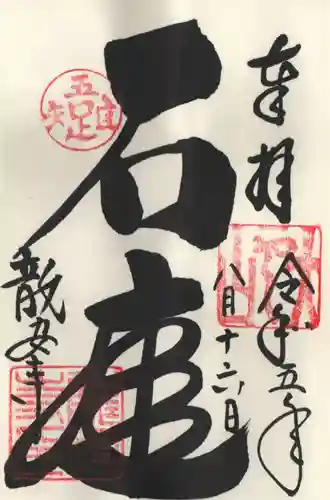 奉拝
令和五年
八月十六日
石庭
龍安寺
吾唯足知